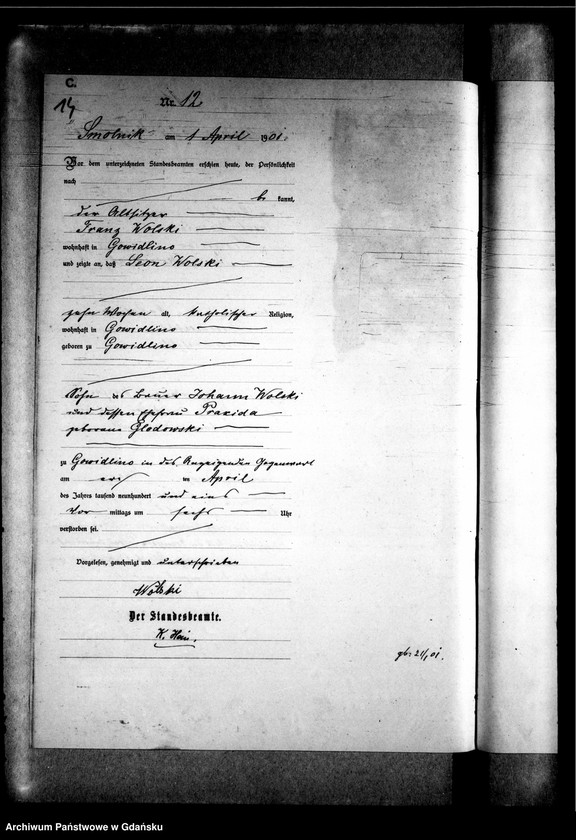 C.
14
Nr. 12
Smolnik am 1 April 1901.
Vor dem unterzeichneten Standesbeamten erschien heute, der Persönlichkeit
nach
be kannt,
der Altsitzer
Franz Wolski
wohnhaft in Gowidlino
und zeigte an, daß Leon Wolski
zehn Wochen alt, katholischer Religion,
wohnhaft in Gowidlino
geboren zu Gowidlino
Sohn des Bauer Johann Wolski
und dessen Ehefrau Praxida
geborene Glodowski
zu Gowidlino in des Anzeigenden Gegenwart
am ersten April
des Jahres tausend neunhundert und eins
Vor mittags um sechs Uhr
verstorben sei.
Vorgelesen, genehmigt und unterschrieben
Wolski
Der Standesbeamte.
K. Hein.
01.
Archiwum Państwowe w Gdańsku